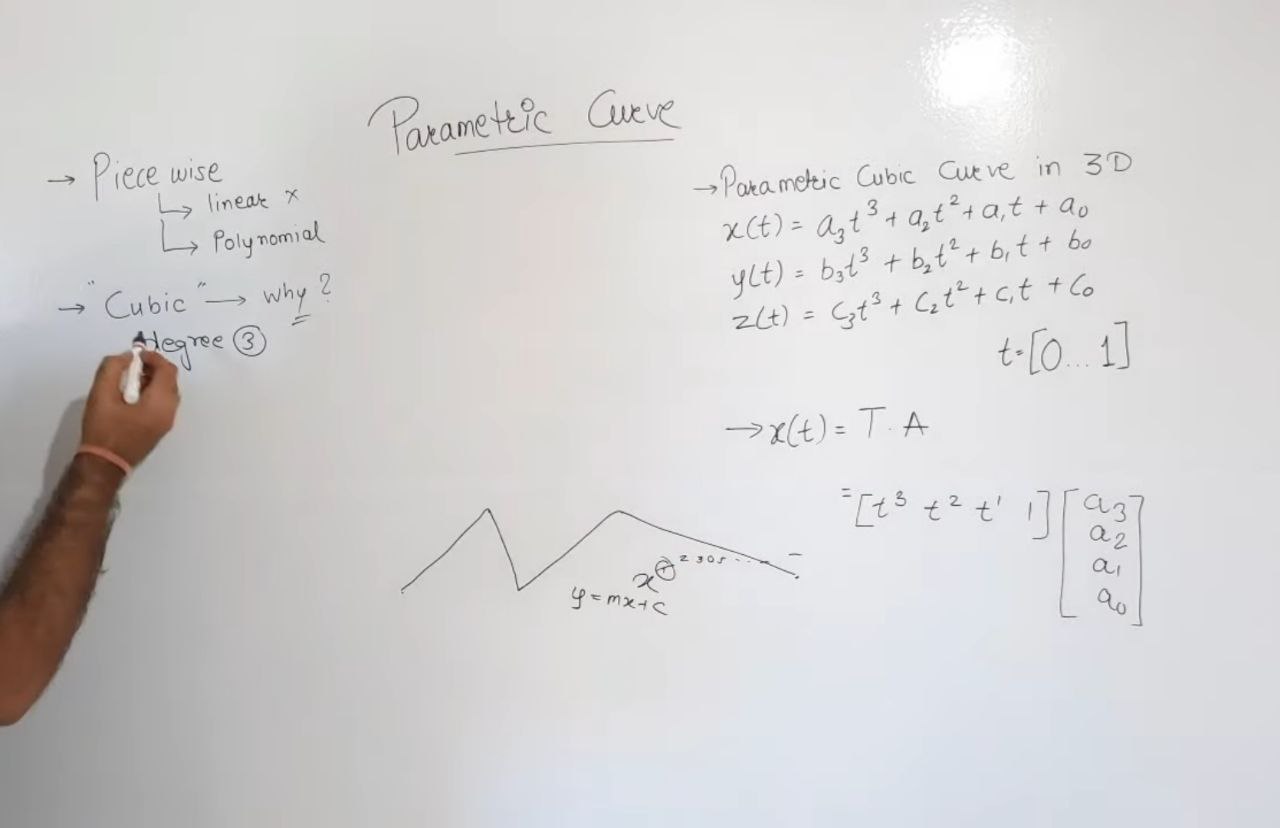 Parametric Curve
→ Piece wise
↳ linear x
↳ Polynomial
→ "Cubic" → why?
degree ③
→ Parametric Cubic Curve in 3D
x(t) = a₃t³ + a₂t² + a₁t + a₀
y(t) = b₃t³ + b₂t² + b₁t + b₀
z(t) = C₃t³ + C₂t² + C₁t + C₀
t=[0... 1]
→ x(t) = T. A
= [t³ t² t' 1] [a₃
a₂
a₁
a₀]
y = mx+c